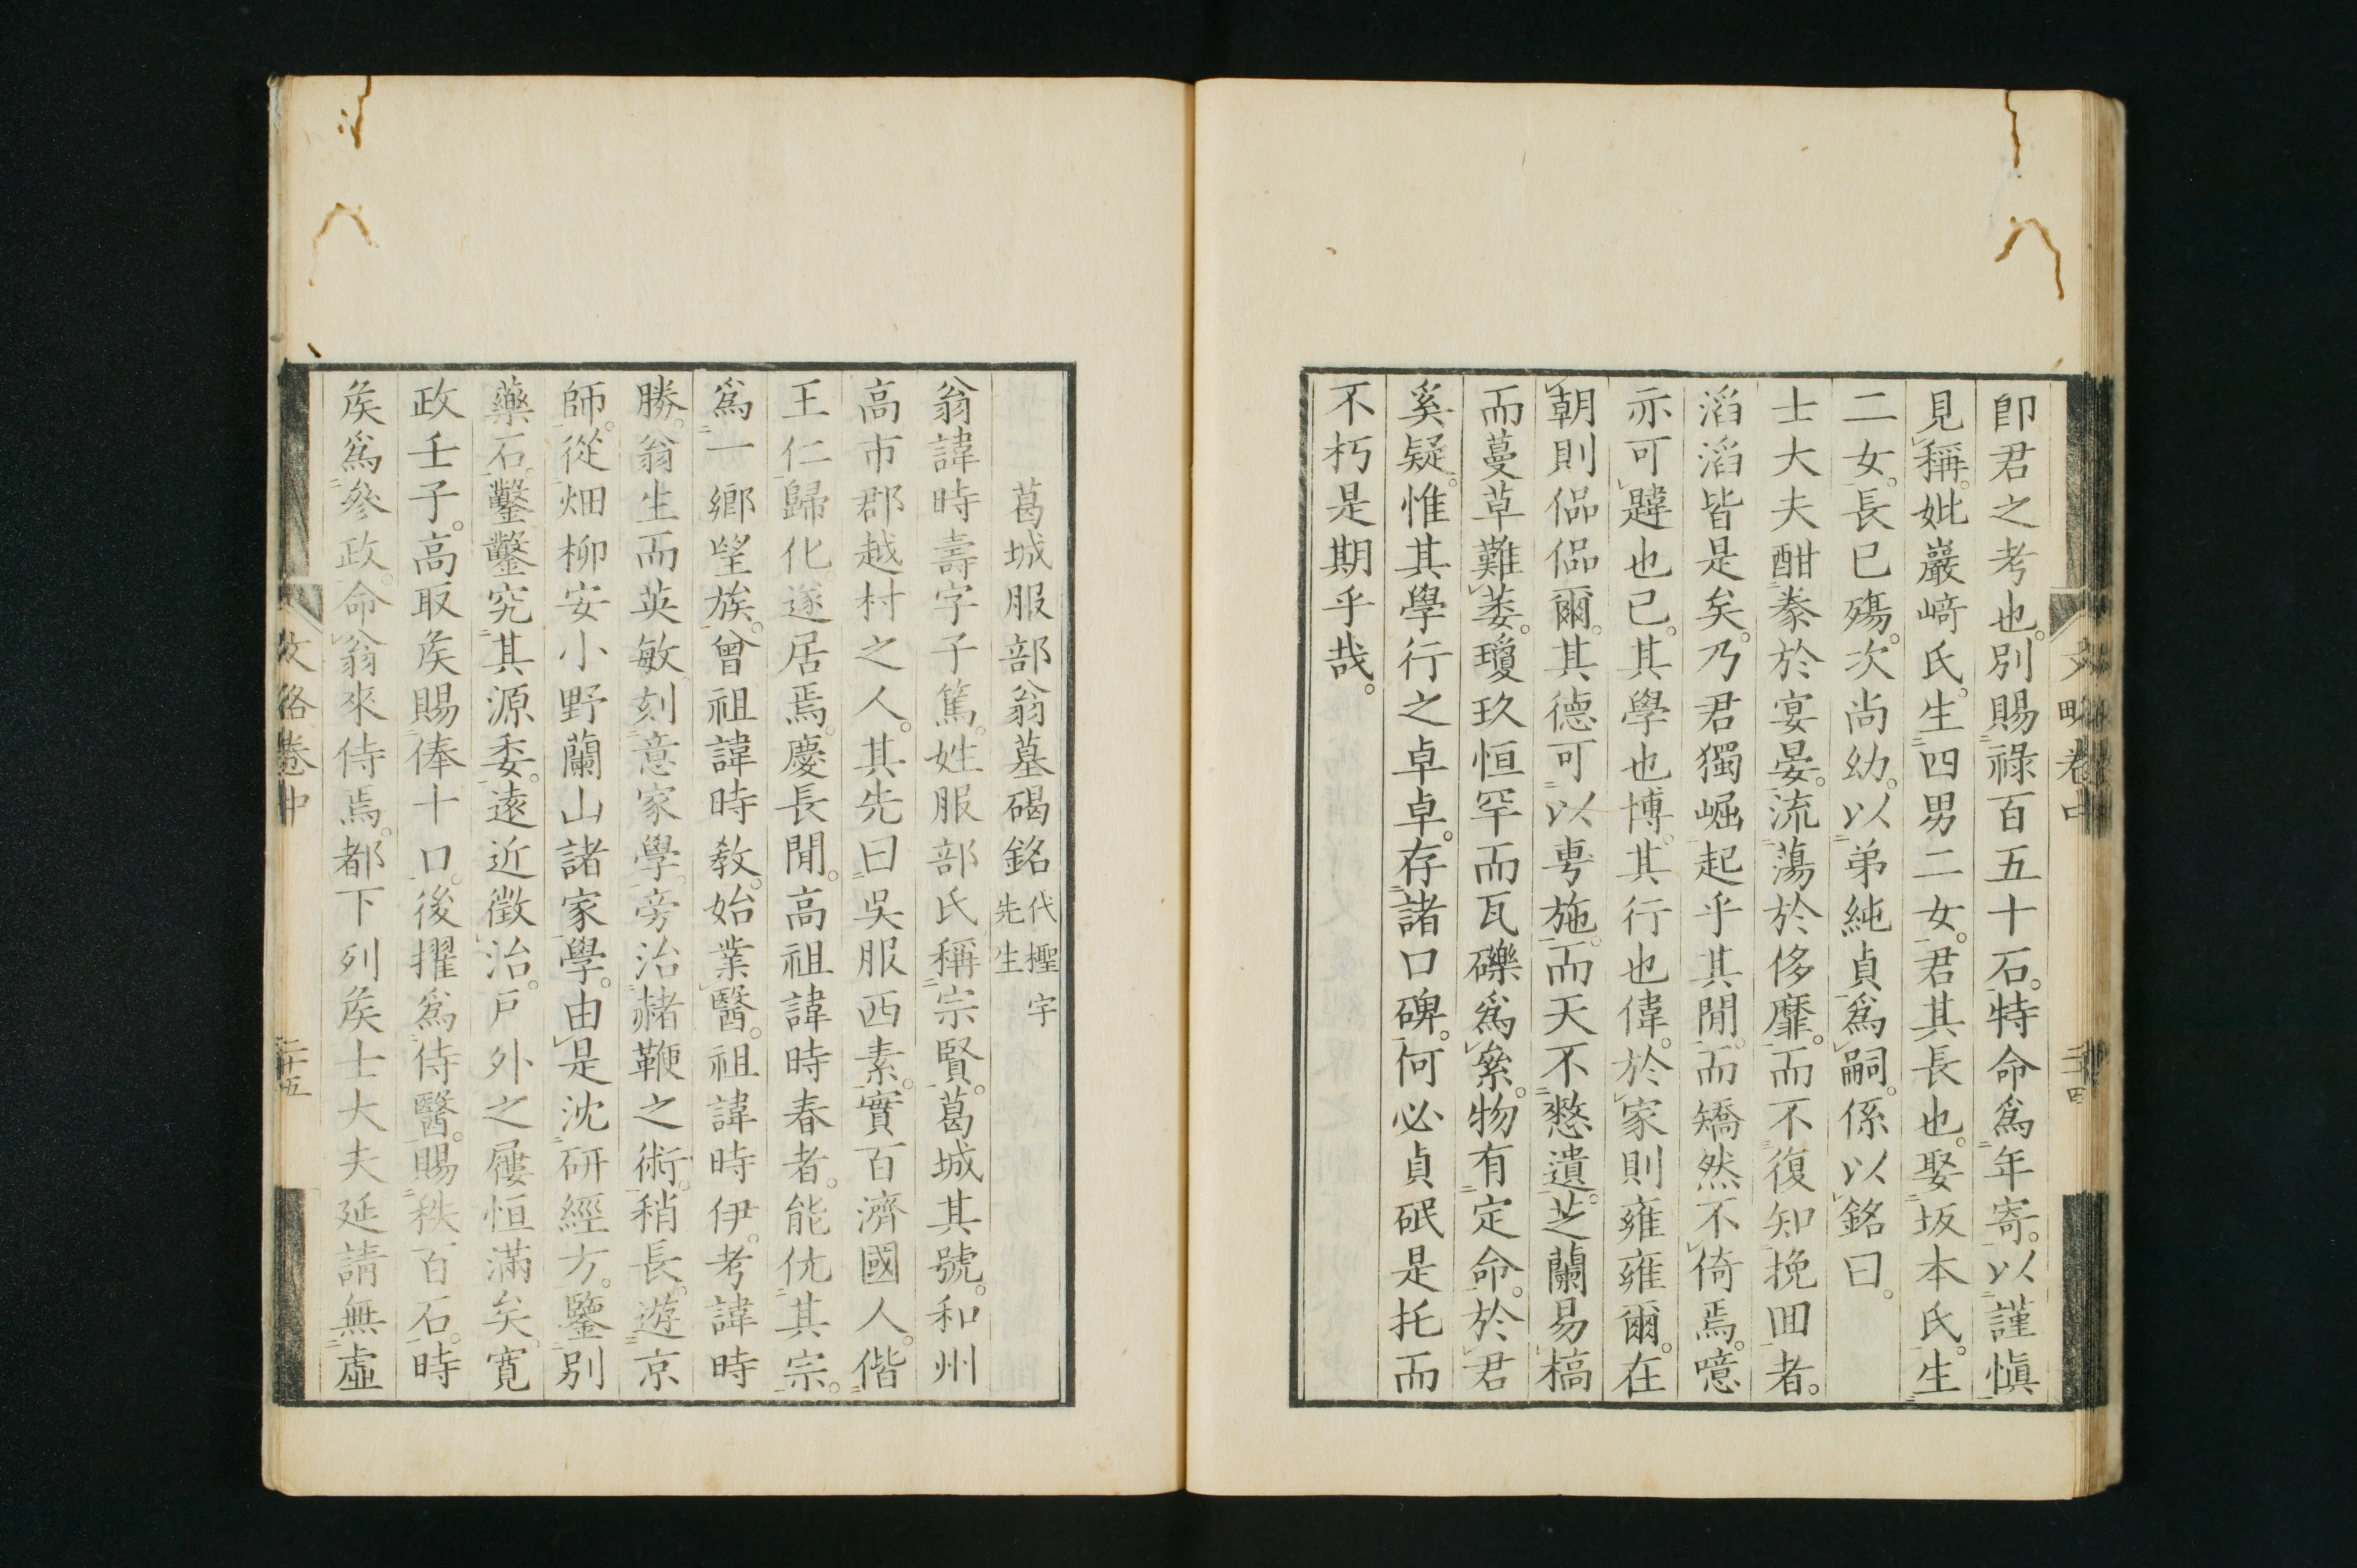 卽君之考也。別賜祿百五十石。特命爲年寄。以謹愼
見稱。妣巖﨑氏。生四男二女。君其長也。娶坂本氏。生
二女。長已殤。次尚幼。以弟純貞爲嗣。係以銘曰。
士大夫酣豢於宴晏。流蕩於侈靡。而不復知挽回者。
滔滔皆是矣。乃君獨崛起乎其閒。而矯然不倚焉。噫
亦可韙也已。其學也博。其行也偉。於家則雍雍爾。在
朝則侃侃爾。其德可以専施。而天不憖遺。芝蘭易槁
而蔓草難萎。瓊玖恒罕而瓦礫爲絫。物有定命。於君
奚疑。惟其學行之卓卓。存諸口碑。何必貞砇是托而
不朽是期乎哉。
文略卷中
二十四
葛城服部翁墓碣銘 代檉宇先生
翁諱時壽字子篤。姓服部氏稱宗賢。葛城其號。和州
高市郡越村之人。其先曰吳服西素。實百濟國人。偕
王仁歸化。遂居焉。慶長閒。高祖諱時春者。能伉其宗。
爲一鄉望族。曾祖諱時敎。始業醫。祖諱時伊。考諱時
勝。翁生而英敏刻意家學。旁治赭鞭之術。稍長。遊京
師。從畑柳安小野蘭山諸家學。由是沈研經方。鑒別
藥石。鑿鑿究其源委。遠近徵治。戶外之屨恒滿矣。寬
政壬子。高取矦賜俸十口。後擢爲侍醫。賜秩百石。時
矦爲參政。命翁來侍焉。都下列矦士大夫延請無虛
文略卷中
二十五